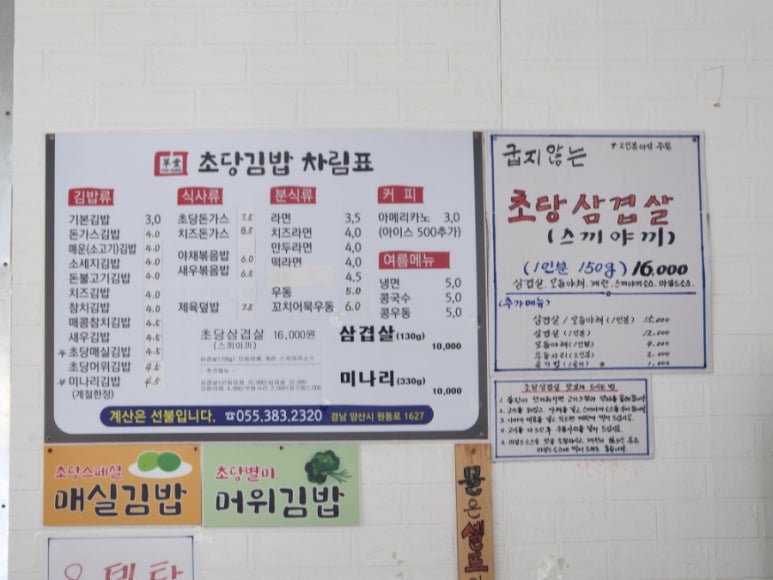 草堂 초당김밥 차림표
김밥류
기본김밥 3,0
돈가스김밥 4.0
매운(소고기)김밥 4.0
소세지김밥 4.0
돈불고기김밥 4.0
치즈김밥 4.0
참치김밥 4.0
매콤참치김밥 4.5
새우김밥 4.5
초당매실김밥 4.5
초당머위김밥 4.5
미나리김밥 4.5
(계절한정)
식사류
초당돈가스 7.5
치즈돈가스 8.5
야채볶음밥 6.0
새우볶음밥 6.5
제육덮밥 7.5
분식류
라면 3,5
치즈라면 4,0
만두라면 4,0
떡라면 4,0
4.5
우동 5.0
꼬치어묵우동 6.0
커 피
아메리카노 3,0
(아이스 500추가)
여름메뉴
냉면 5,0
콩국수 5,0
콩우동 5,0
초당삼겹살 16,000원
(스끼야끼)
삼겹살(130g)
10,000
미나리(330g)
10,000
계산은 선불입니다. ☎055.383.2320 경남 양산시 원동로 1627
굽지않는 2인분이상 주문
초당삼겹살
(스끼야끼)
(1인분 150g) 16,000
삼겹살, 모듬야채, 계란, 스끼야끼소스,
<추가메뉴>
삼겹살/모듬야채 (1인분) 15,000
삼겹살 (1인분) 12,000
모듬야채 (1인분) 4,000
우동사리 (1인분) 2,000
공기밥 (1개) 1,000
초당삼겹살 맛있게 드시는 법
초당스페셜
매실김밥
초당별미
머위김밥